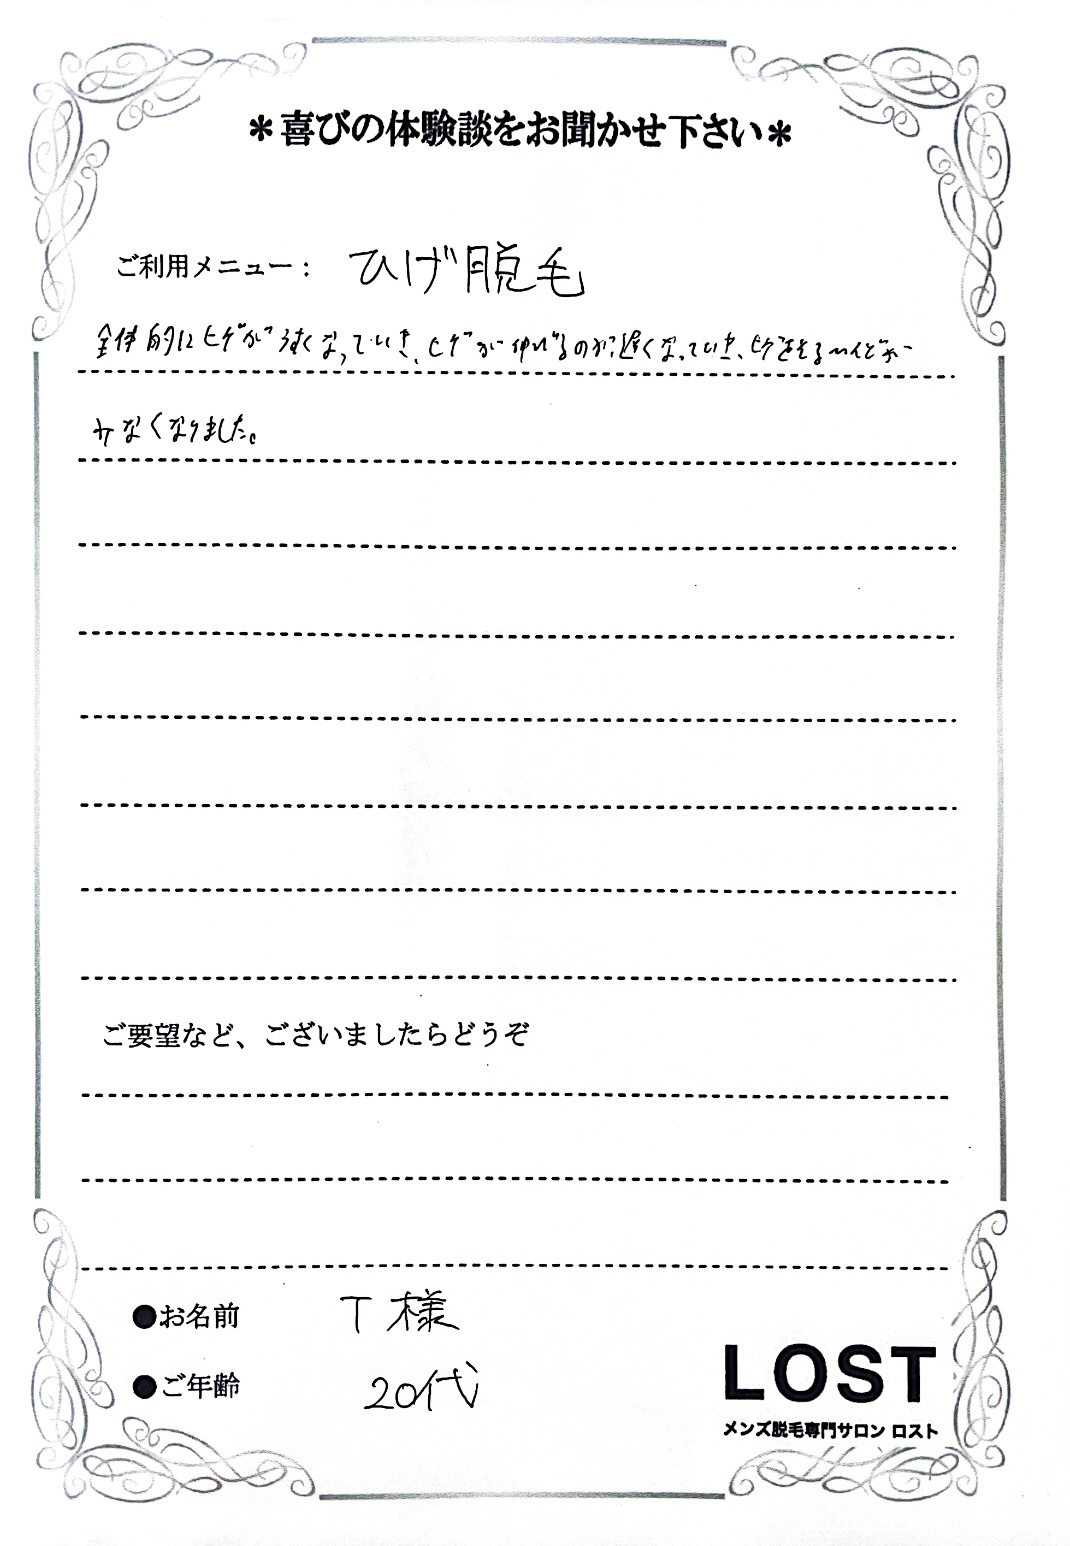 ＊喜びの体験談をお聞かせ下さい＊
ご利用メニュー： ひげ脱毛
全体的にヒゲがうすくなっていき、ヒゲが伸びるのが遅くなっていき、ヒゲをそるひんどが
へなくなりました。
ご要望など、ございましたらどうぞ
●お名前 T様
●ご年齢 20代
LOST
メンズ脱毛専門サロン ロスト